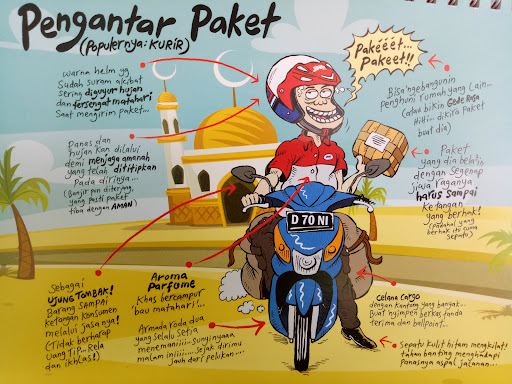 Pengantar Paket
(Populernya: KURIR)
Pakéééét...
Pakeet!!
Warna helm yg
Sudah suram akibat
sering diguyur hujan
dan tersengat matahari
Saat mengirim paket...
Bisa ngebangunin
penghuni rumah yang Lain...
(atau bikin Gede Rasa
dikira Paket
buat dia)
Panas dan
hujan Kan dilalui
demi menjaga amanah
yang telah dititipkan
Pada dirinya...
(Banjir pun diterjang,
yang pasti paket
tiba dengan AMAN)
Paket
yang dia bela'in
dengan Segenap
jiwa Raganya
harus sampai
Ketangan
yang berhak!
(Padahal yang
berhak itu cuma
Sepatu)
D 70 NI
Sebagai
UJUNG TOMBAK!
Barang SAMPAI
Ketangan Konsumen
melalui jasanya!
(Tidak berharap
Uang TIP... Rela
dan ikhlas!)
Aroma
Parfume
Khas bercampur
'bau matahari'...
Armada Roda dua
yang Selalu Setia
menemaniiii... Sunyinyaaa
malam iniiiii.... sejak dirimu
jauh dari pelukan....
Celana Cargo
dengan Kantong yang banyak...
Buat nyimpen berkas tanda
terima dan ballpoint...
Sepatu Kulit hitam mengkilat!
tahan banting menghadapi
panasnya aspal jalanan...